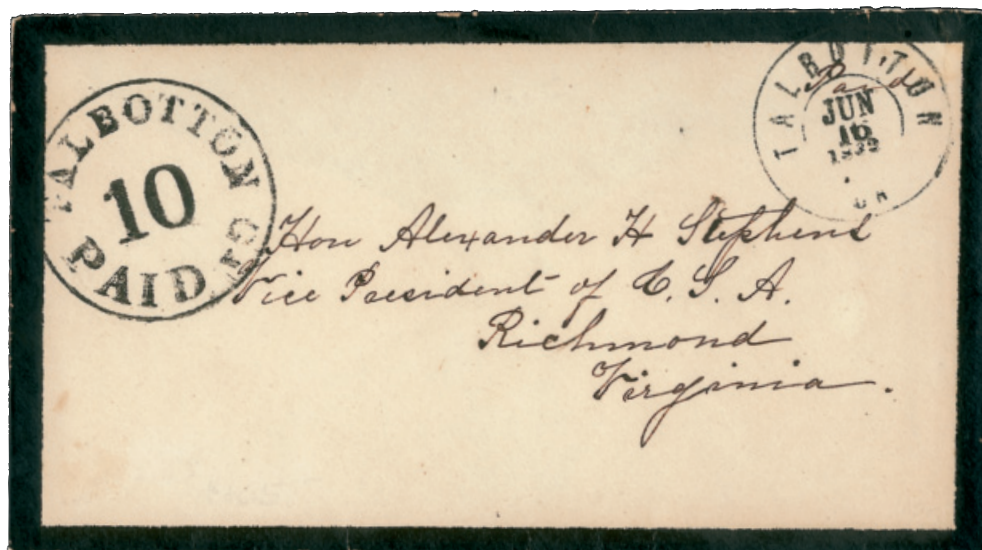 TALBOTTON GA
10
PAID
TALBOTTON
Paid
JUN
16
GA
Hon Alexander H Stephens
Vice President of C. S. A.
Richmond
Virginia.